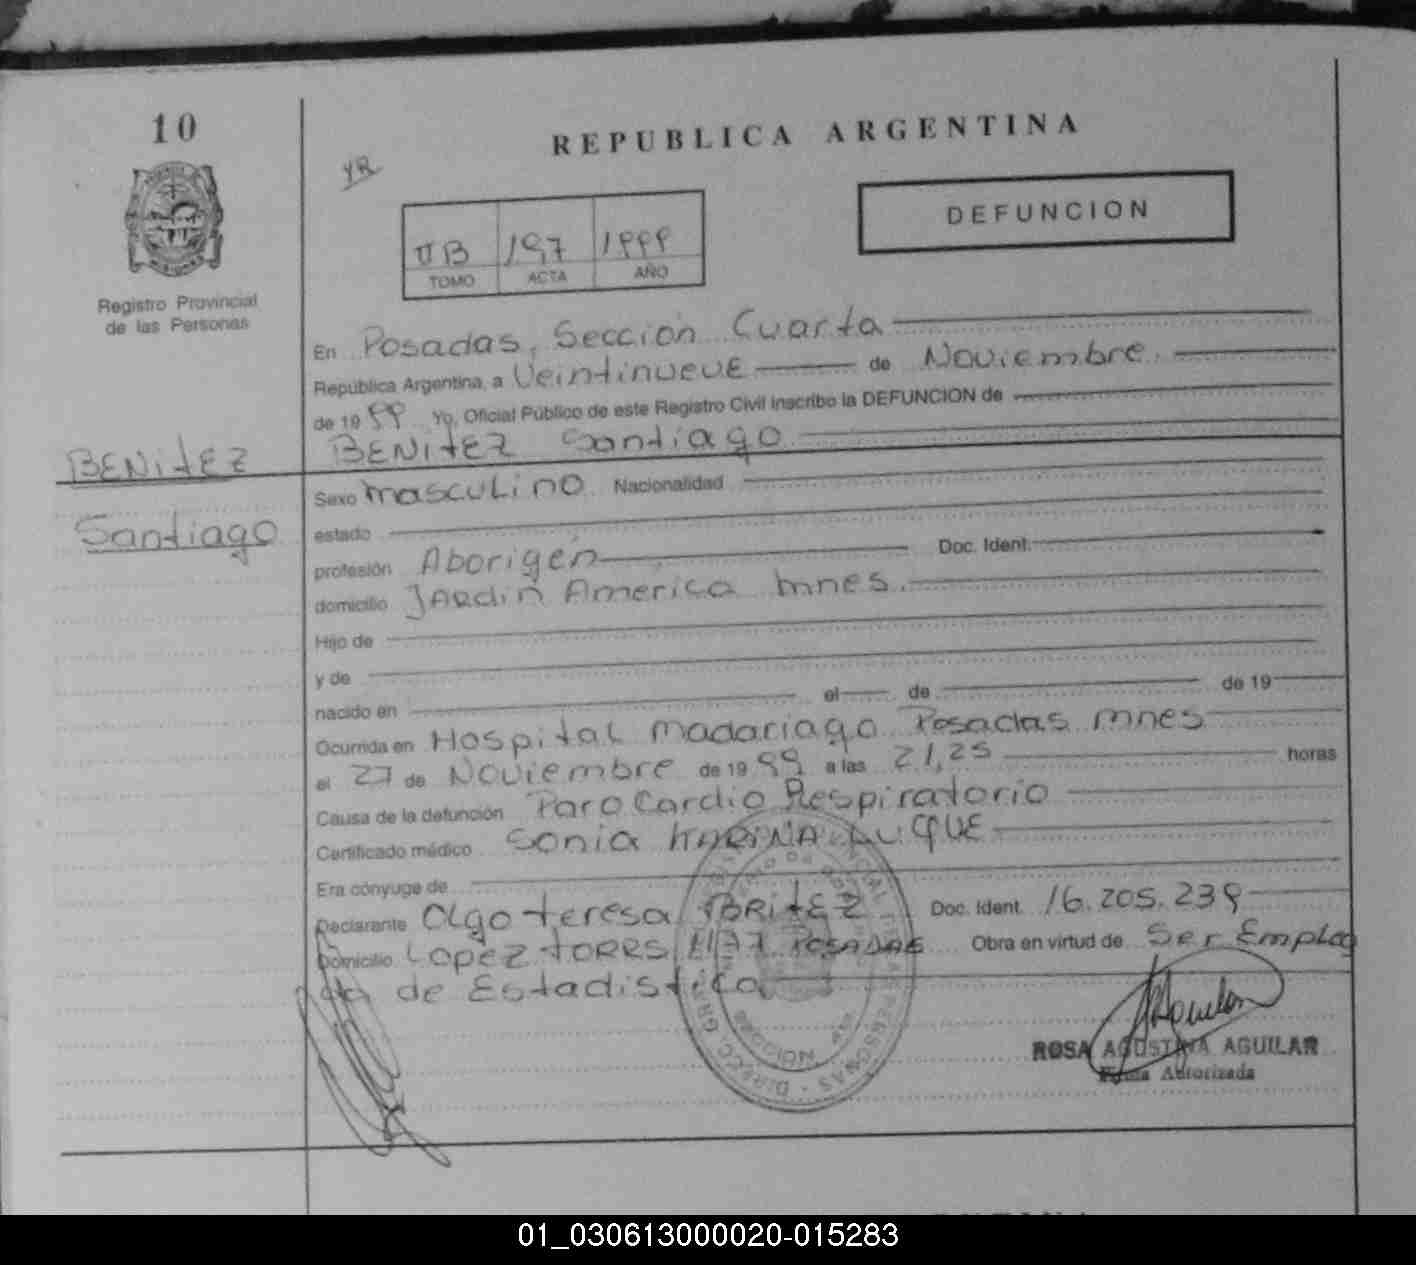 10
REPUBLICA ARGENTINA
YR
DEFUNCION
II B 197 1999
TOMO ACTA AÑO
Registro Provincial
de las Personas
En Posadas, Sección Cuarta
República Argentina, a Veintinueve de Noviembre
de 19 99 Yo, Oficial Público de este Registro Civil Inscribo la DEFUNCION de
BENITEZ Santiago
BENITEZ
Santiago
Sexo masculino Nacionalidad
estado
profesión Aborigen Doc. Ident.
domicilio JARdin America mnes.
Hijo de
y de
nacido en el de de 19
Ocurrida en Hospital Madariaga Posadas mnes
el 27 de Noviembre de 19 99 a las 21,25 horas
Causa de la defunción Paro Cardio Respiratorio
Certificado médico Sonia KARINA LUQUE
Era cónyuge de
Declarante Olga teresa BRITEZ Doc. Ident. 16.205.239
Domicilio Lopez TORRES POSADAS Obra en virtud de Ser Emplea
da de Estadistica
ROSA AGUSTINA AGUILAR
Firma Autorizada
01_030613000020-015283